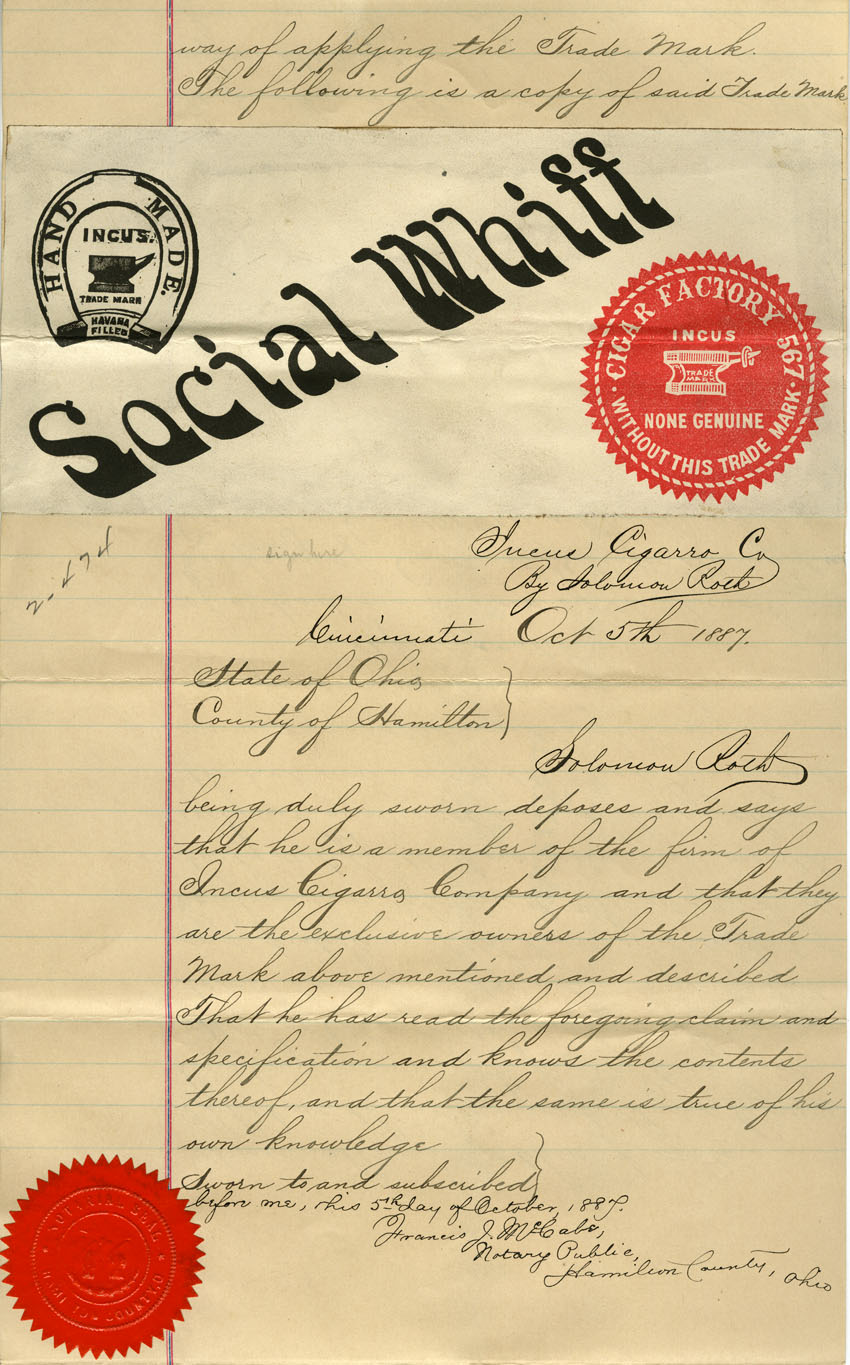 way of applying the Trade Mark.
The following is a copy of said Trade Mark
HAND MADE.
INCUS.
TRADE MARK
HAVANA
FILLED
Social Whiff
CIGAR FACTORY 567
INCUS
TRADE
MARK
NONE GENUINE
WITHOUT THIS TRADE MARK
2-474
sign here
Incus Cigarro Co
By Solomon Roth
Cincinnati Oct 5th 1887.
State of Ohio
County of Hamilton
Solomon Roth
being duly sworn deposes and says
that he is a member of the firm of
Incus Cigarro Company and that they
are the exclusive owners of the Trade
Mark above mentioned and described
That he has read the foregoing claim and
specification and knows the contents
thereof, and that the same is true of his
own knowledge
Sworn to and subscribed
before me, this 5th day of October, 1887.
Francis J. McCabe,
Notary Public,
Hamilton County, Ohio
NOTARIAL SEAL
HAMILTON CO. OHIO